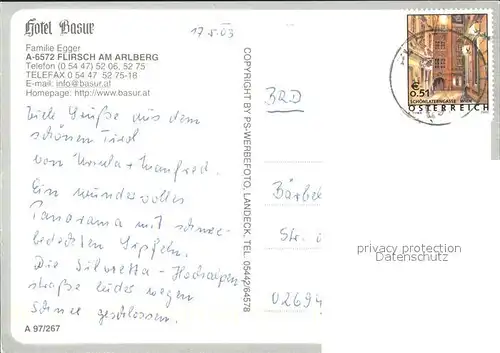 Hotel Basur
Familie Egger
A-6572 FLIRSCH AM ARLBERG
Telefon (0 54 47) 52 06, 52 75
TELEFAX 0 54 47 52 75-18
E-mail: info@basur.at
Homepage: http://www.basur.at
17.5.03
Viele Grüße aus dem
schönen Tirol
von Ursula + Manfred.
Ein wundervolles
Panorama mit schnee-
bedeckten Gipfeln.
Die Silvretta - Hochalpen
straße leider wegen
Schnee geschlossen.
A 97/267
COPYRIGHT BY PS-WERBEFOTO, LANDECK, TEL. 05442/64578
€ 0.51
SCHÖNLATERNGASSE WIEN
ÖSTERREICH
BRD
Bärbel
Str.
02694
privacy protection
Datenschutz